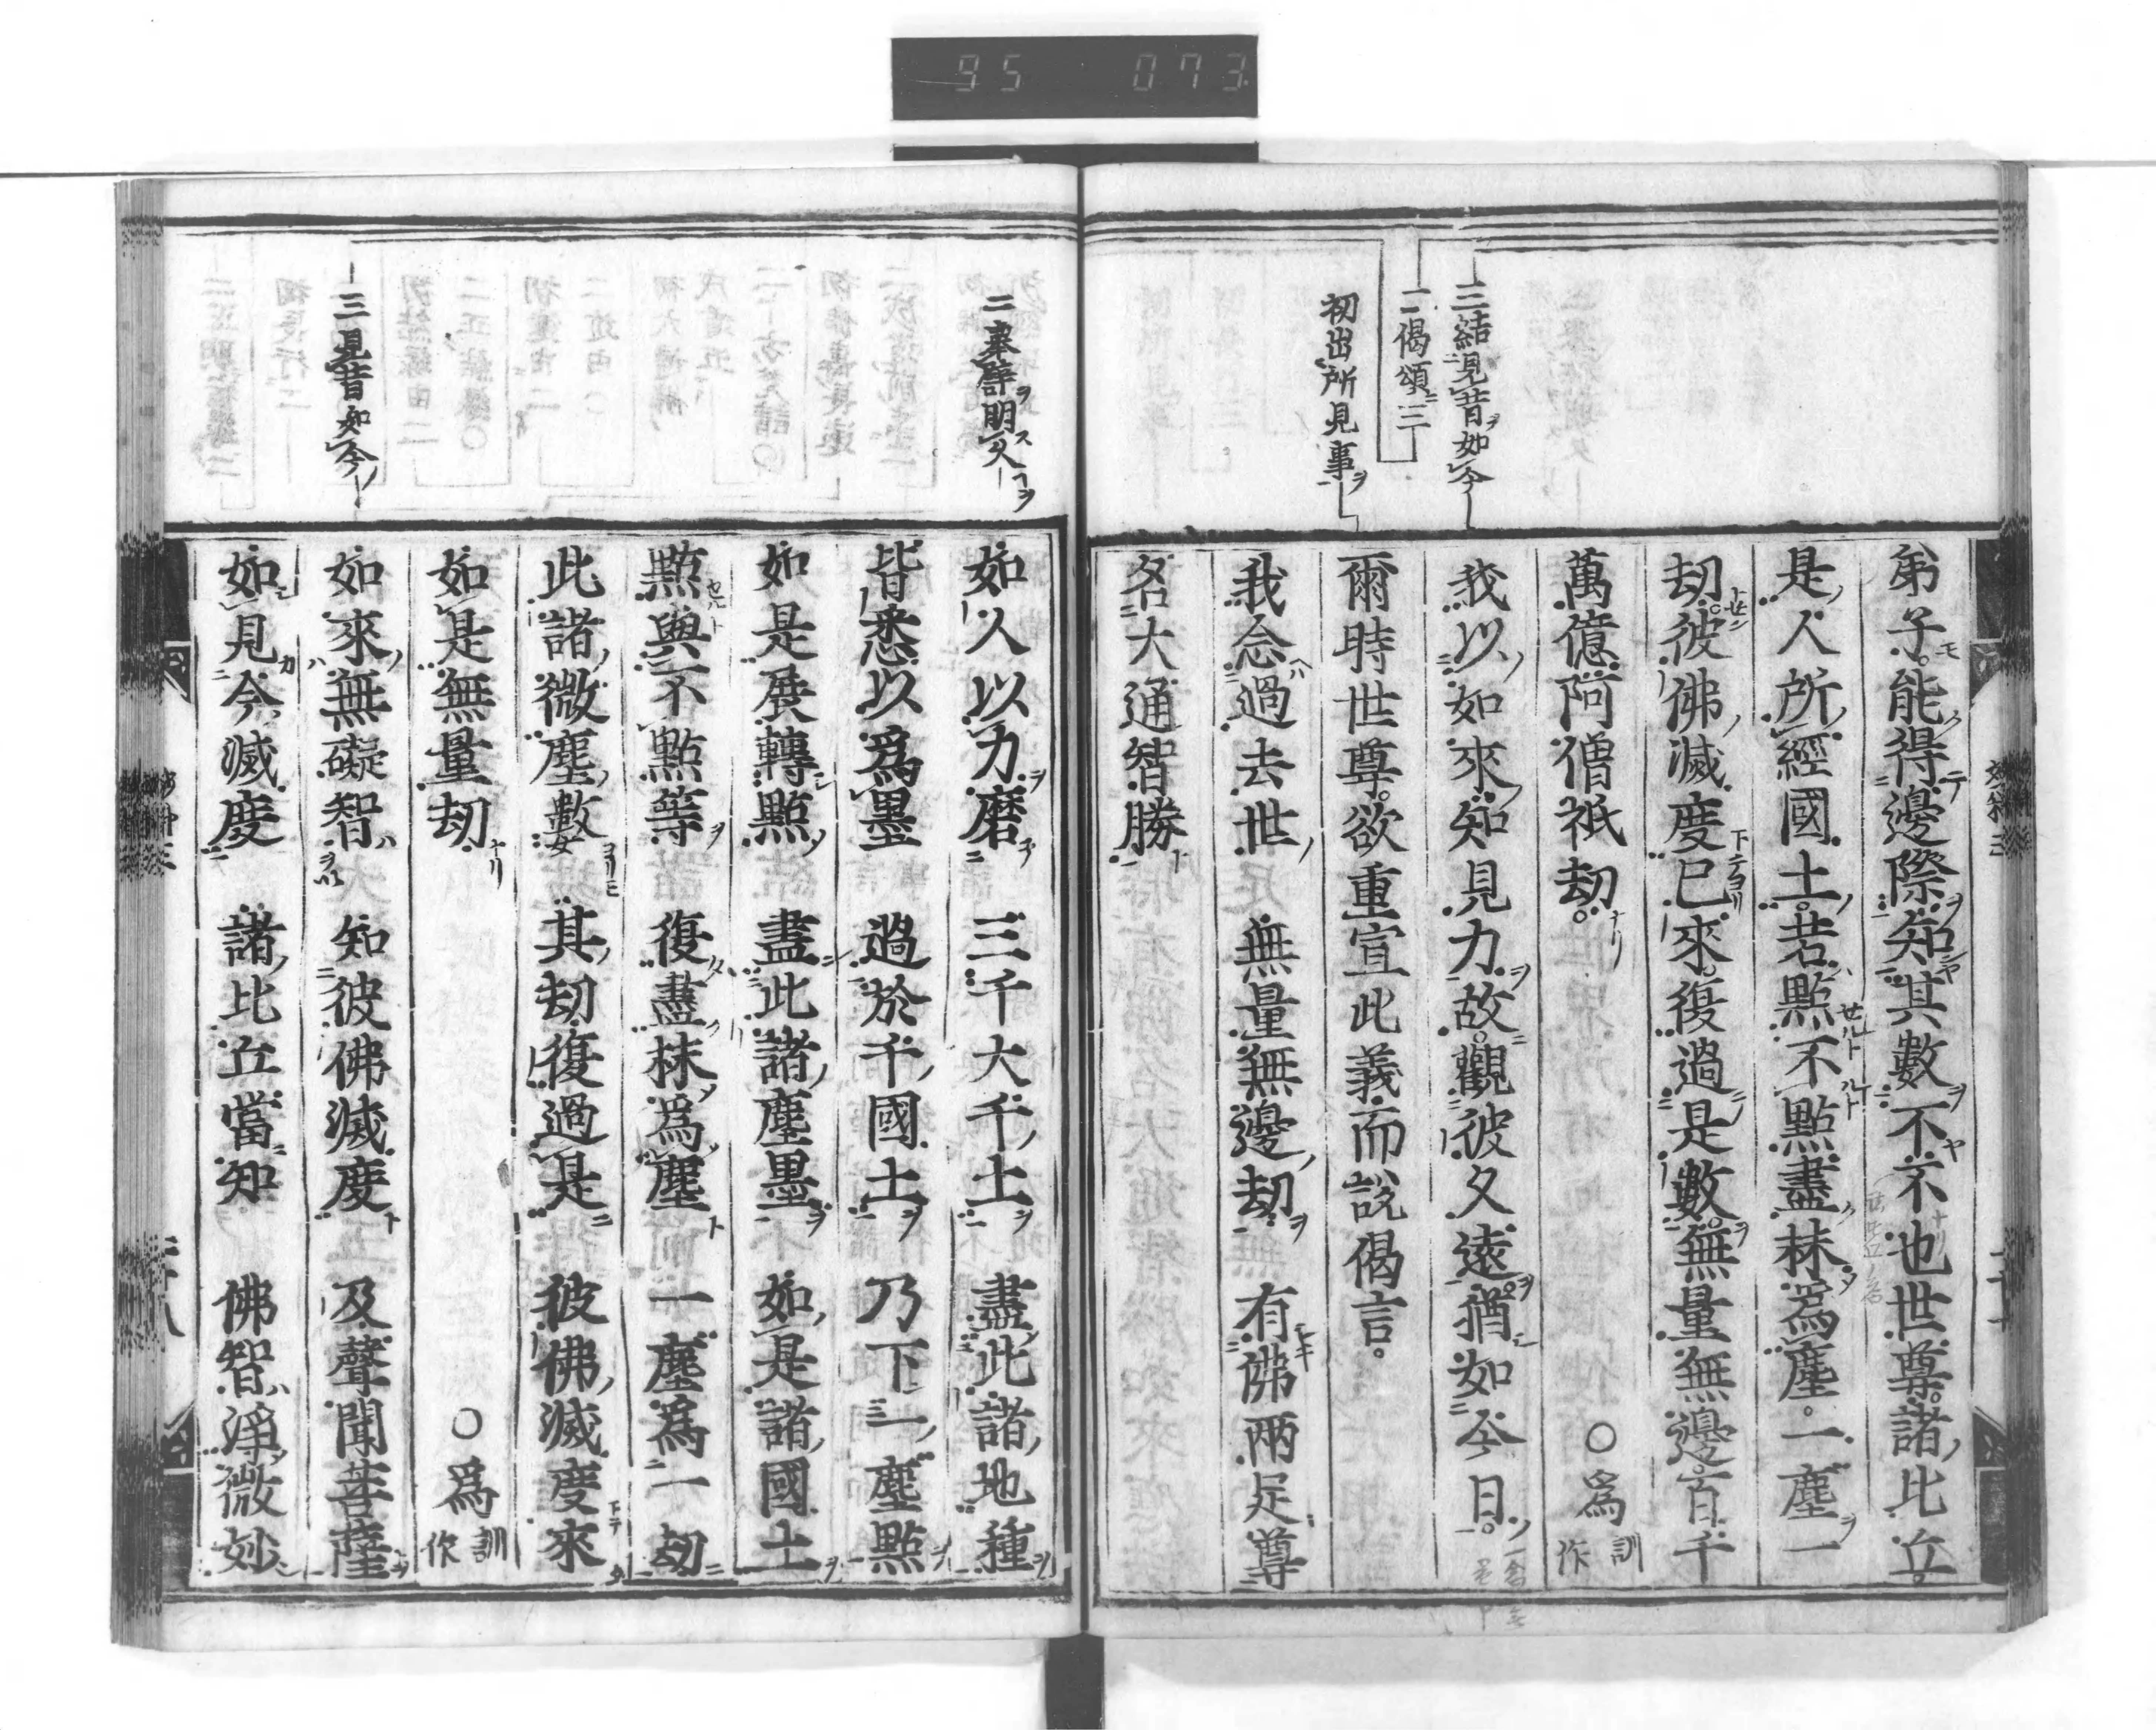 95 073
三結見昔如今
二偈頌三
初出所見事
弟子能得邊際知其數不不也世尊諸比丘
是人所經國土若點不點盡抹爲塵一塵一
劫彼佛滅度已來復過是數無量無邊百千
萬億阿僧祇劫 〇爲訓作
我以如來知見力故觀彼久遠猶如今日
爾時世尊欲重宣此義而說偈言
我念過去世 無量無邊劫 有佛兩足尊
名大通智勝
二擧譬明久
三見昔如今
如人以力磨 三千大千土 盡此諸地種
皆悉以爲墨 過於千國土 乃下一塵點
如是展轉點 盡此諸塵墨 如是諸國土
點與不點等 復盡抹爲塵 一塵爲一劫
此諸微塵數 其劫復過是 彼佛滅度來
如是無量劫 〇爲訓作
如來無礙智 知彼佛滅度 及聲聞菩薩
如見今滅度 諸比丘當知 佛智淨微妙